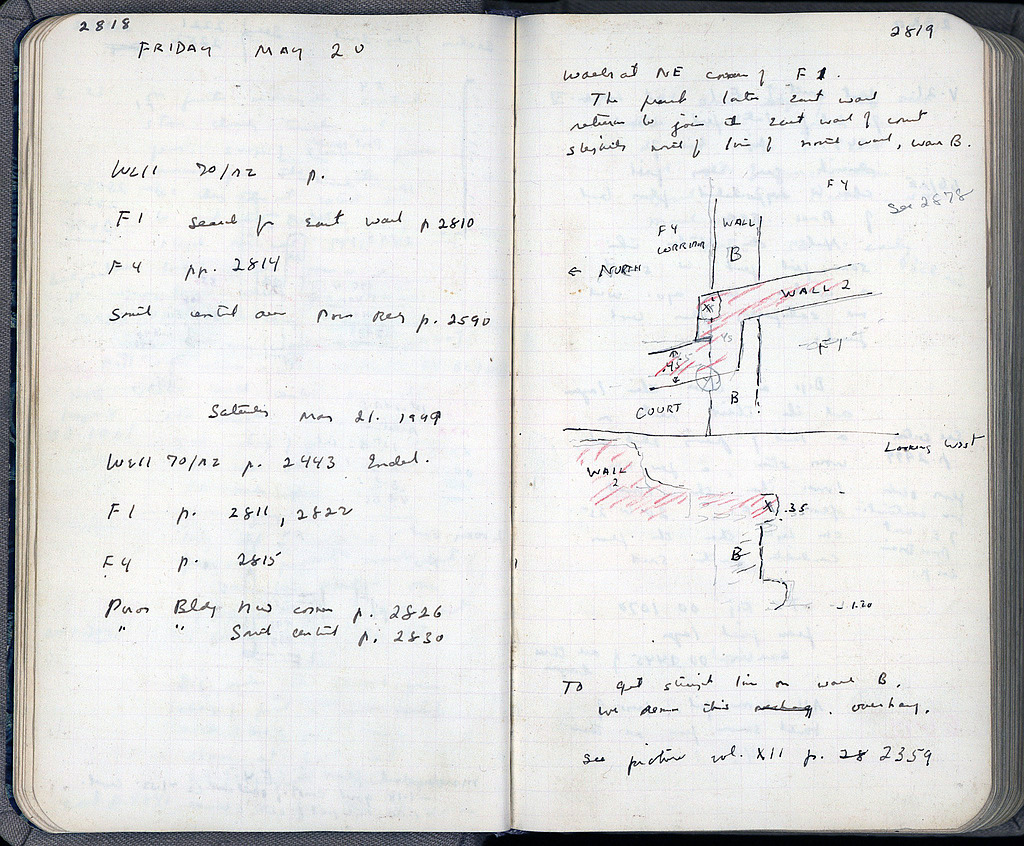 2818
FRIDAY MAY 20
Well 70/NZ p.
F1 search for east wall p 2810
F4 pp. 2814
South central area Poros Bldg p. 2590
Saturday May 21. 1949
Well 70/NZ p. 2443
F1 p. 2811, 2822
F4 p. 2815
Poros Bldg NW corner p. 2826
" " South central p. 2830
2819
Walls at NE corner of F1.
The later east wall
returns to join the east wall of court
slightly north of line of north wall, wall B.
F4
See 2878
F4
WALL
B
← NORTH
WALL 2
X
.45
F1
X
B
COURT
Looking West
WALL
2
X .35
B
1.20
To get straight line on wall B.
we this overhang.
See picture vol. XII p. 28 2359